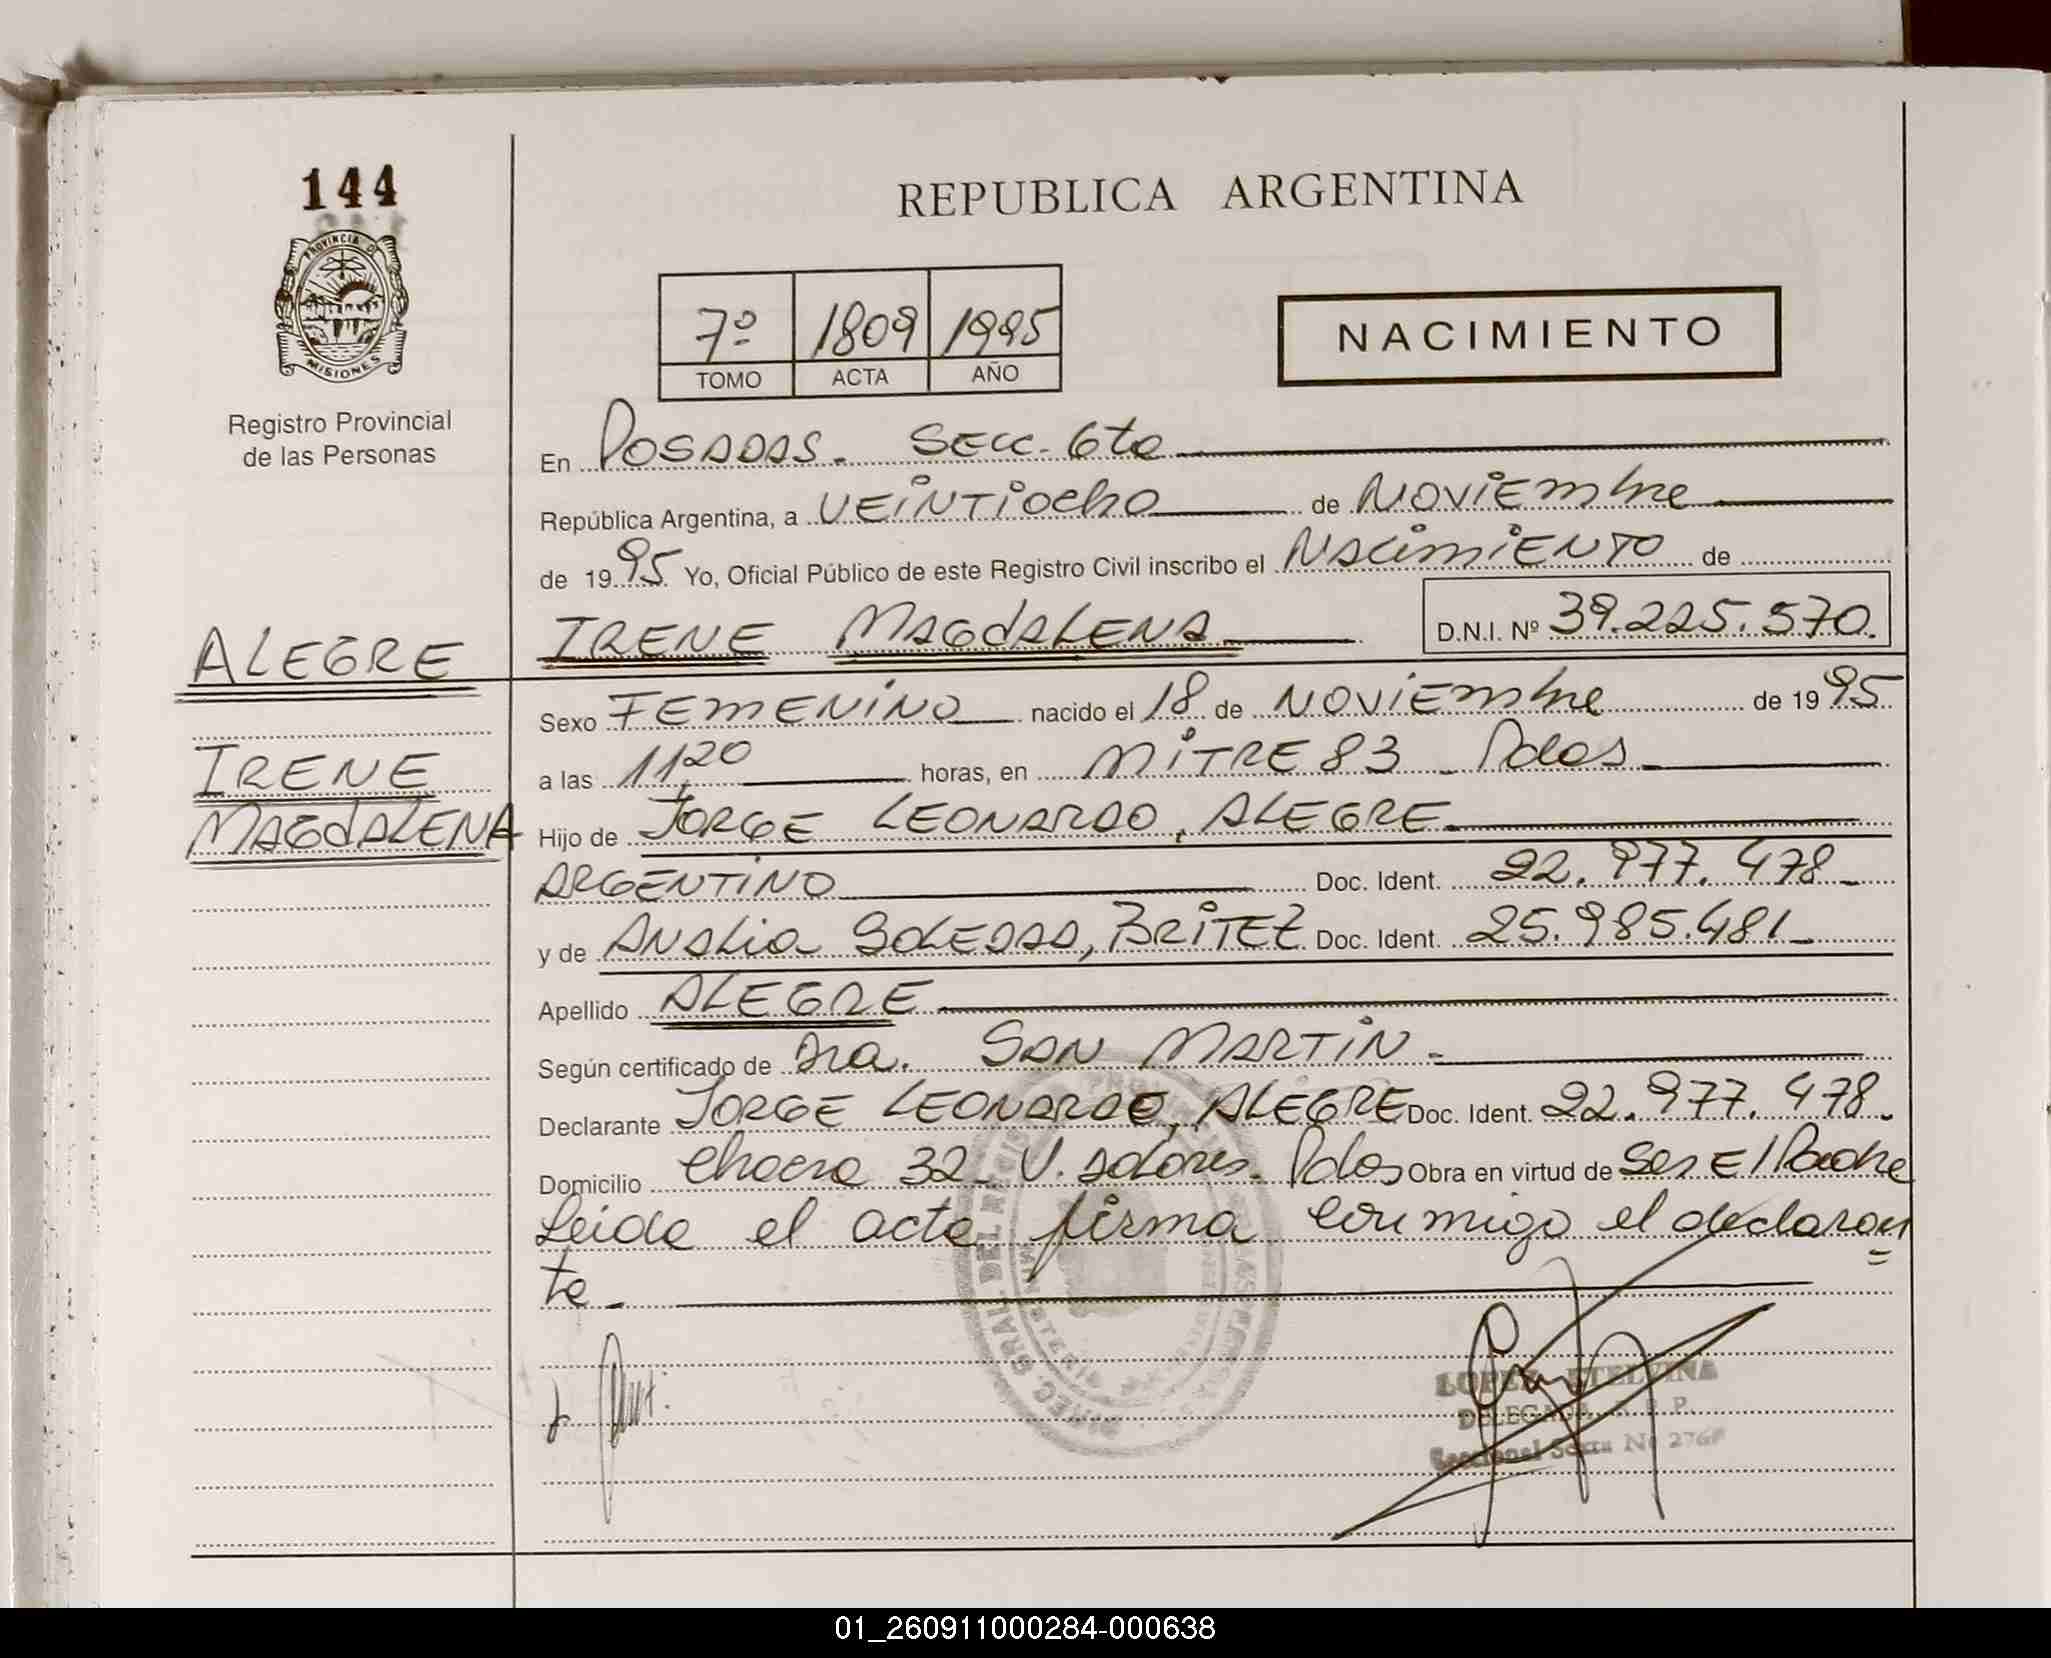 144
PROVINCIA DE
MISIONES
Registro Provincial
de las Personas
REPUBLICA ARGENTINA
7º 1809 1995
TOMO ACTA AÑO
NACIMIENTO
En POSADAS. SECC. 6ta
República Argentina, a VEINTIOCHO de NOVIEMBRE
de 1995 Yo, Oficial Público de este Registro Civil inscribo el NACIMIENTO de
ALEGRE
IRENE MAGDALENA D.N.I. Nº 39.225.570.
Sexo FEMENINO nacido el 18 de NOVIEMBRE de 1995
IRENE
MAGDALENA
a las 11,20 horas, en MITRE 83 - Pdas.
Hijo de JORGE LEONARDO, ALEGRE.
ARGENTINO Doc. Ident. 22.977.478-
y de ANALIA SOLEDAD, BRITEZ Doc. Ident. 25.985.481-
Apellido ALEGRE
Según certificado de Dra. SAN MARTIN.-
Declarante JORGE LEONARDO, ALEGRE Doc. Ident. 22.977.478.
Domicilio Chacra 32- V. Dolores. Pdas Obra en virtud de Ser El Padre
Leida el acta firma conmigo el declaran
te.-
DIREC. GRAL. DEL REGIST
LOPEZ ETELVINA
DELEGADA R. P.
Seccional Sexta Nº 2768
01_260911000284-000638